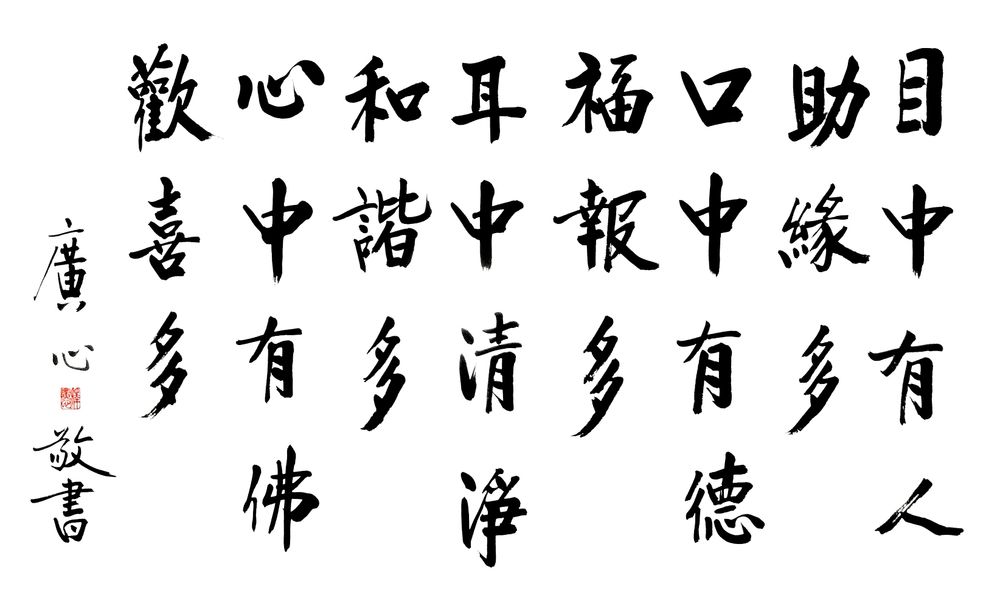 目中有人
助緣多
口中有德
福報多
耳中清淨
和諧多
心中有佛
歡喜多
廣心敬書